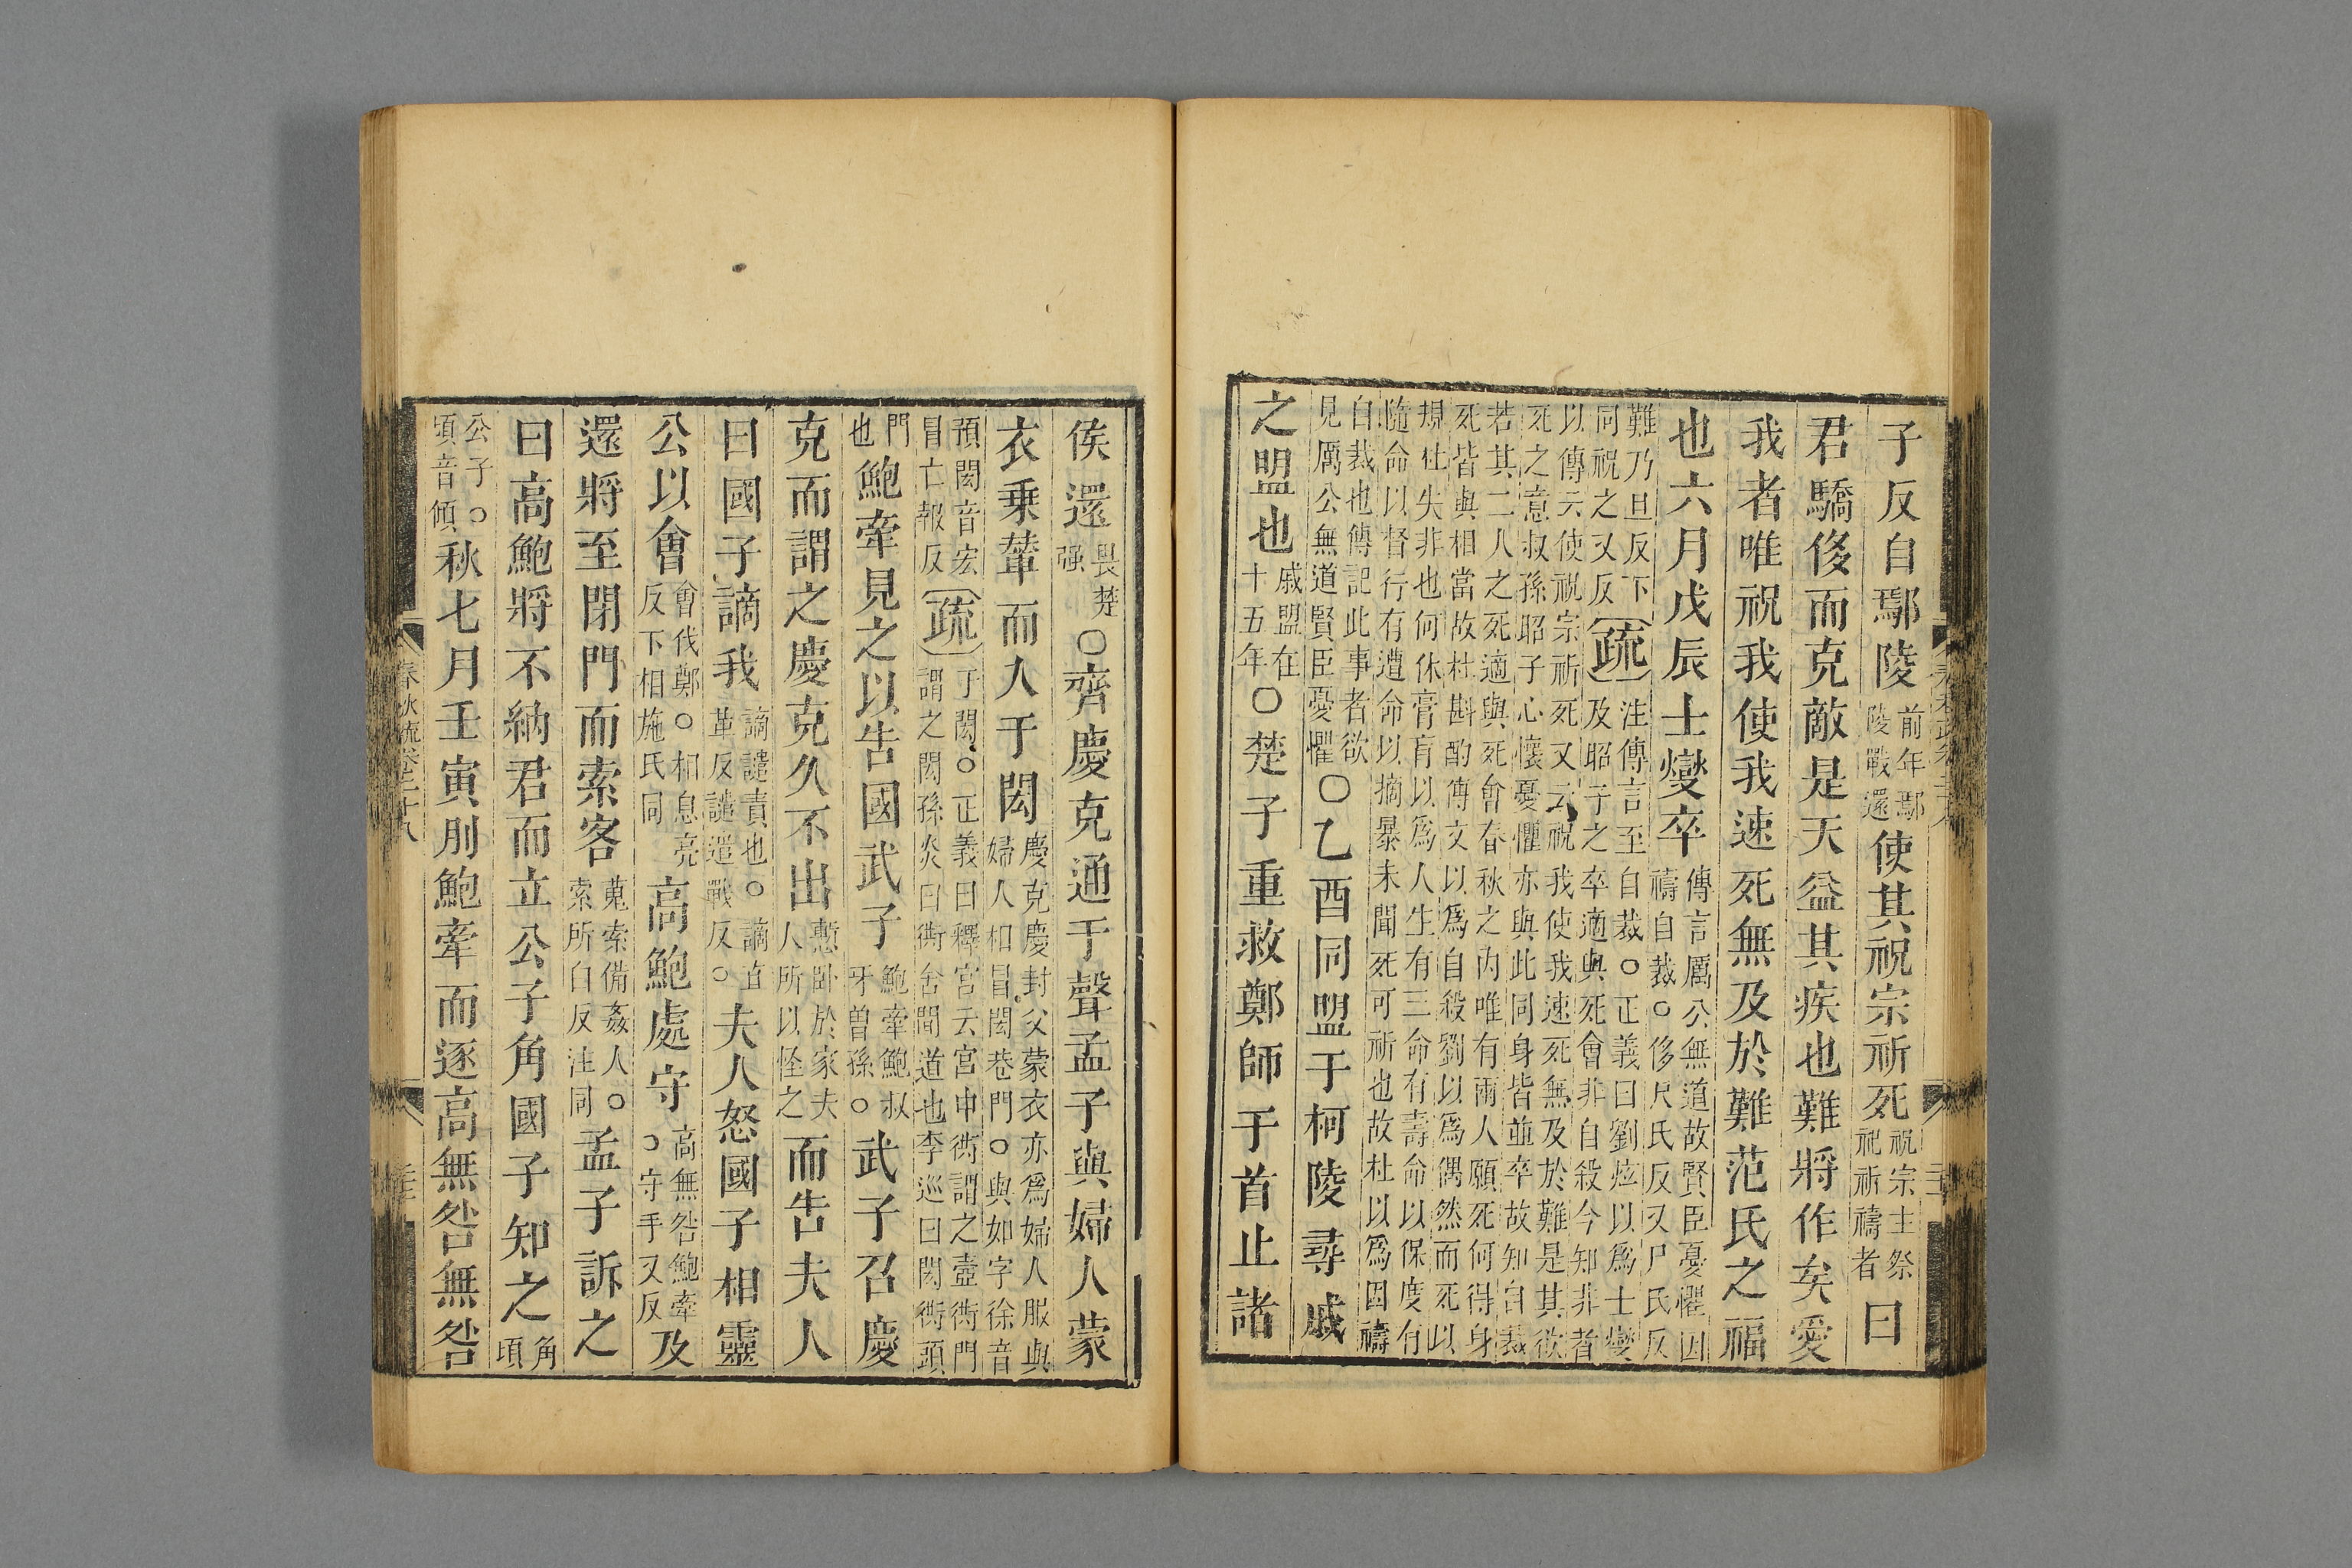 子反自鄢陵前年鄢陵戰還使其祝宗祈死祝宗主祭祀祈禱者曰
君驕侈而克敵是天益其疾也難將作矣愛
我者唯祝我使我速死無及於難范氏之福
也六月戊辰士燮卒傳言厲公無道故賢臣憂懼因禱自裁○侈尺氏反又尸氏反
難乃旦反下同祝之又反疏注傳言至自裁○正義曰劉炫以爲士燮及昭子之卒適與死會非自殺今知非者
以傳云使祝宗祈死又云祝我使我速死無及於難是其欲死之意叔孫昭子心懷憂懼亦與此同身皆並卒故知自裁
若其二人之死適與死會春秋之內唯有兩人願死何得身死皆與相當故杜斟酌傳文以爲自殺劉以爲偶然而死以
規杜失非也何休膏肓以爲人生有三命有壽命以保度有隨命以督行有遭命以摘暴未聞死可祈也故杜以爲因禱
自裁也傳記此事者欲見厲公無道賢臣憂懼○乙酉同盟于柯陵尋戚
之盟也戚盟在十五年○楚子重救鄭師于首止諸
侯還畏楚强○齊慶克通于聲孟子與婦人蒙
衣乗輦而入于閎慶克慶封父蒙衣亦爲婦人服與婦人相冒閎巷門○與如字徐音
預閎音宏冒亡報反疏于閎○正義曰釋宮云宮中衖謂之壼衖門謂之閎孫炎曰衖舍間道也李巡曰閎衖頭
門也鮑牽見之以告國武子鮑牽鮑叔牙曾孫○武子召慶
克而謂之慶克久不出慙卧於家夫人所以怪之而告夫人
曰國子謫我謫譴責也○謫直革反譴遣戰反○夫人怒國子相靈
公以會會伐鄭○相息亮反下相施氏同高鮑處守高無咎鮑牽○守手又反及
還將至閉門而索客蒐索備姦人○索所白反注同孟子訴之
曰高鮑將不納君而立公子角國子知之角頃
公子○頃音傾秋七月壬寅刖鮑牽而逐高無咎無咎
春秋疏卷二十八